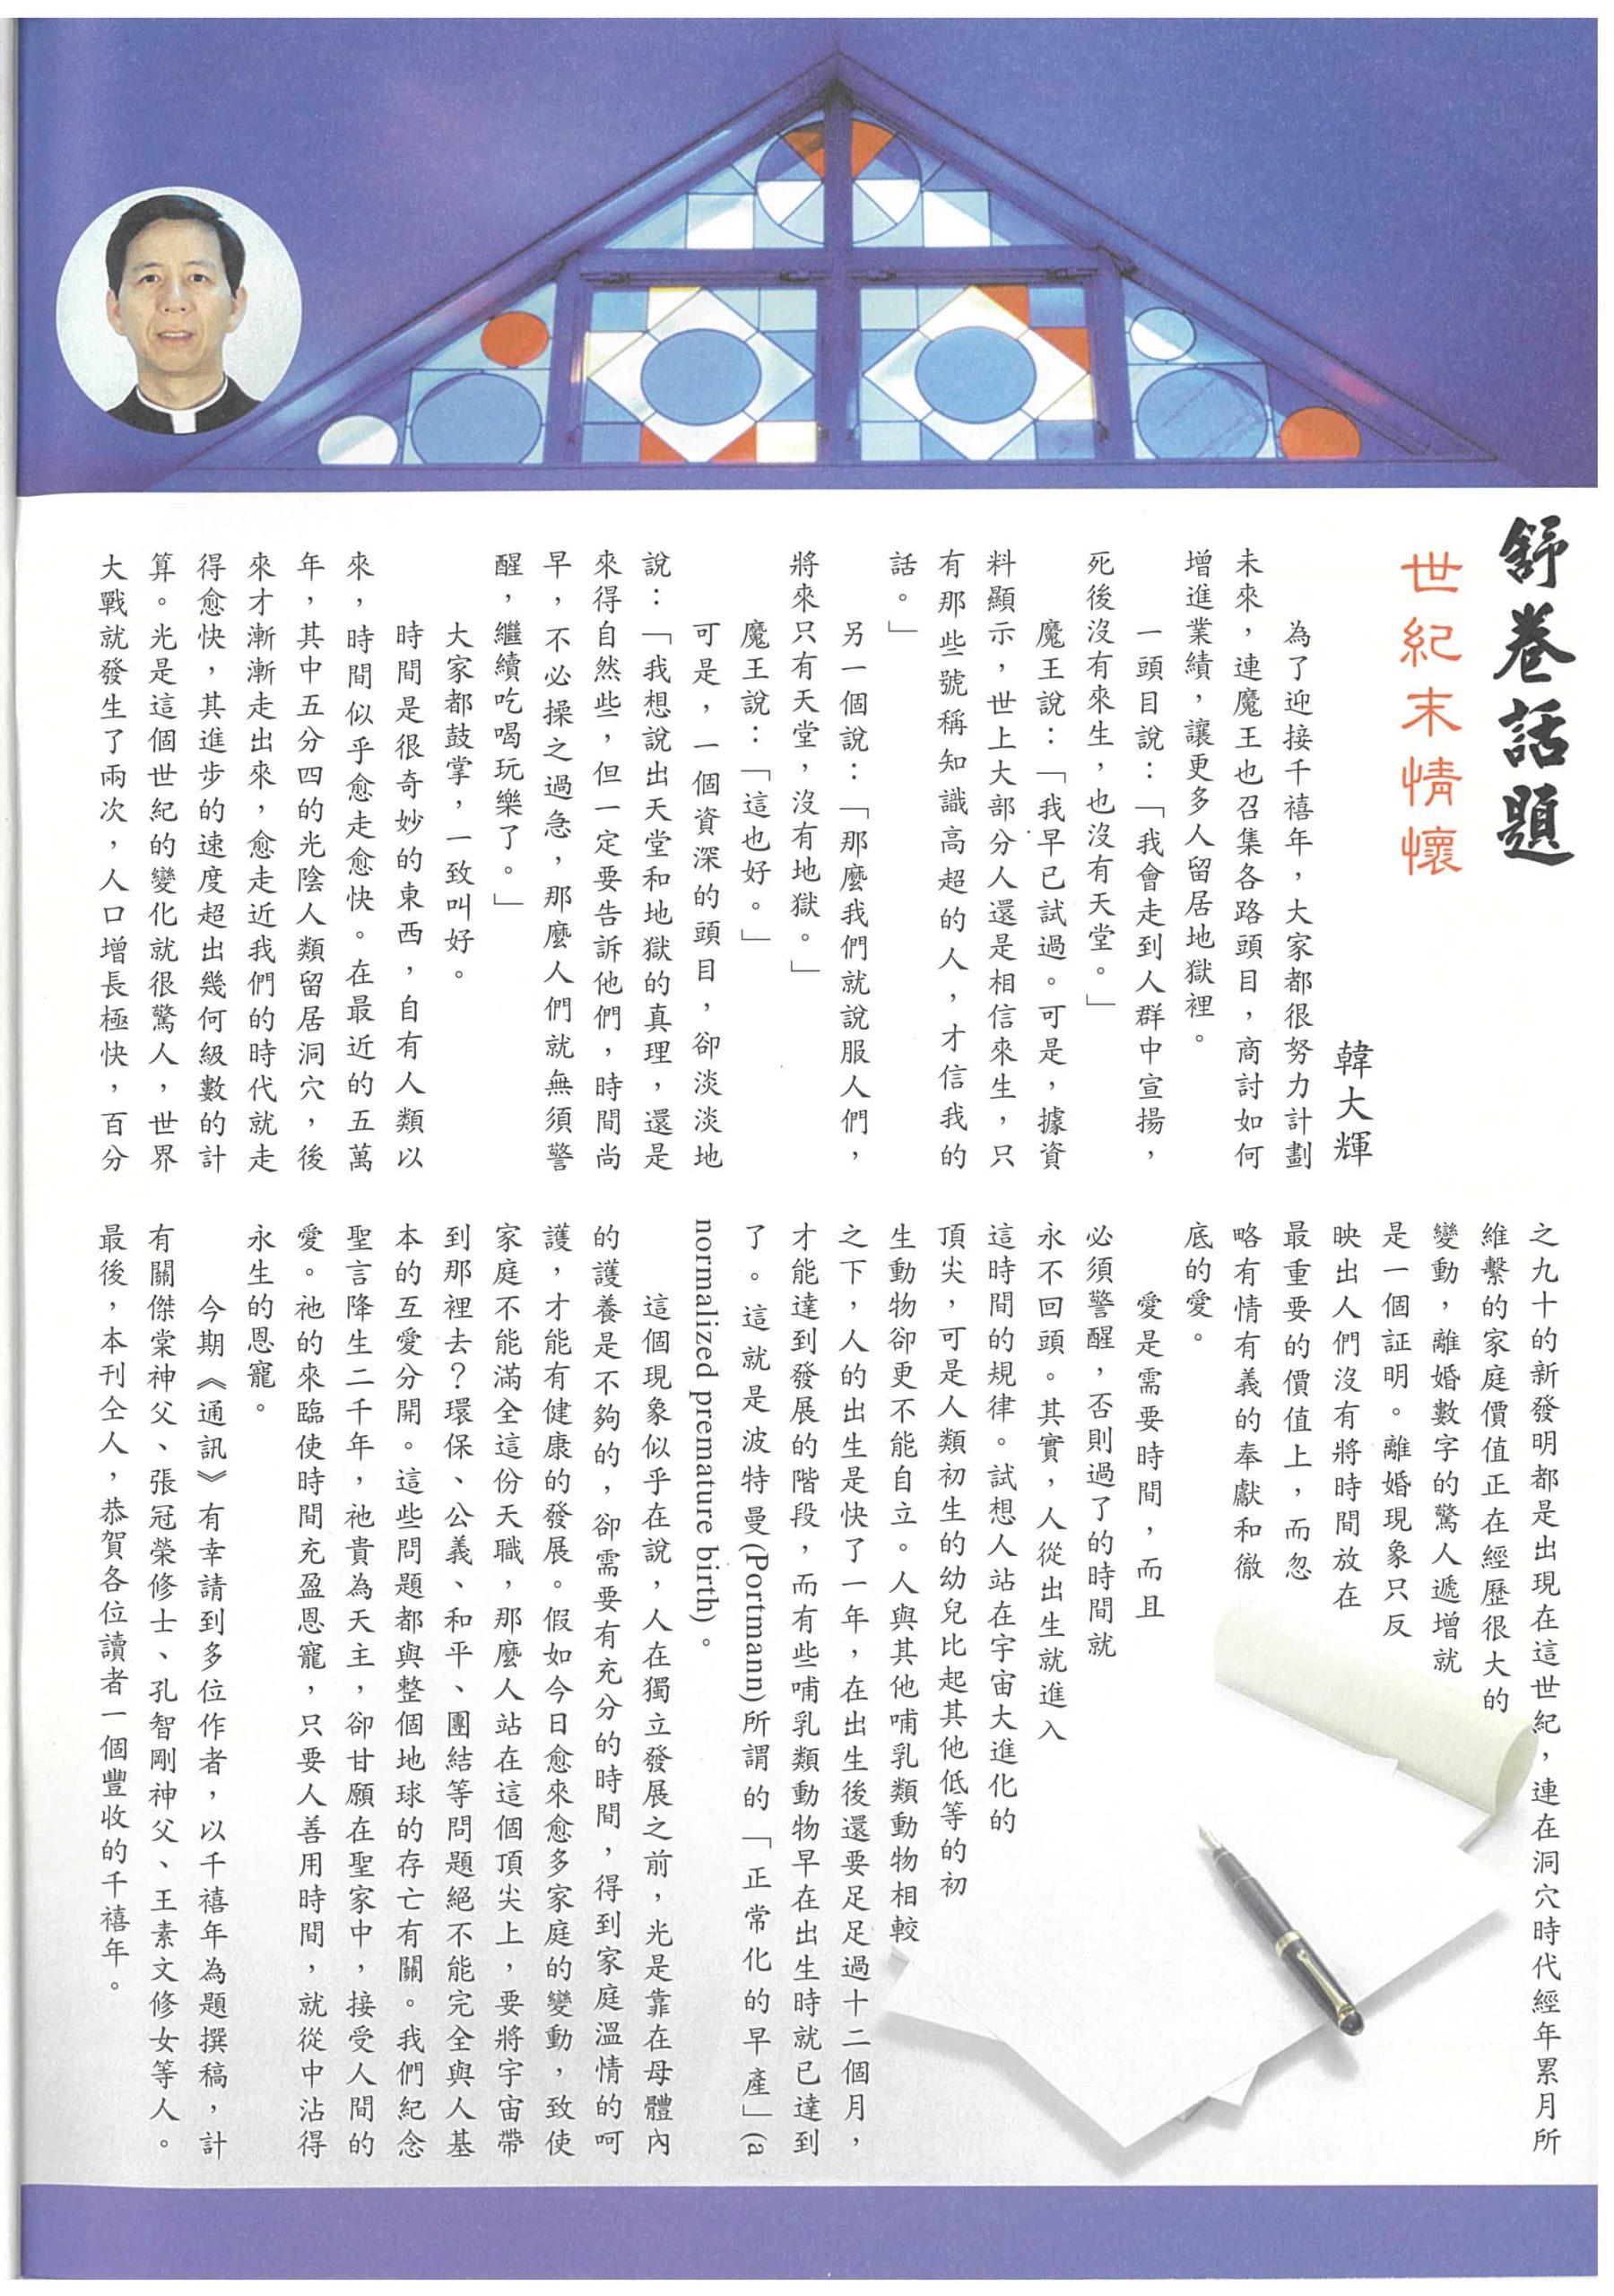 舒卷話題
世紀末情懷
韓大輝
為了迎接千禧年，大家都很努力計劃
未來，連魔王也召集各路頭目，商討如何
增進業績，讓更多人留居地獄裡。
一頭目說：「我會走到人群中宣揚，
死後沒有來生，也沒有天堂。」
魔王說：「我早已試過。可是，據資
料顯示，世上大部分人還是相信來生，只
有那些號稱知識高超的人，才信我的
話。」
另一個說：「那麼我們就說服人們，
將來只有天堂，沒有地獄。」
魔王說：「這也好。」
可是，一個資深的頭目，卻淡淡地
說：「我想說出天堂和地獄的真理，還是
來得自然些，但一定要告訴他們，時間尚
早，不必操之過急，那麼人們就無須警
醒，繼續吃喝玩樂了。」
大家都鼓掌，一致叫好。
時間是很奇妙的東西，自有人類以
來，時間似乎愈走愈快。在最近的五萬
年，其中五分四的光陰人類留居洞穴，後
來才漸漸走出來，愈走近我們的時代就走
得愈快，其進步的速度超出幾何級數的計
算。光是這個世紀的變化就很驚人，世界
大戰就發生了兩次，人口增長極快，百分
之九十的新發明都是出現在這世紀，連在洞穴時代經年累月所
維繫的家庭價值正在經歷很大的
變動，離婚數字的驚人遞增就
是一個証明。離婚現象只反
映出人們沒有將時間放在
最重要的價值上，而忽
略有情有義的奉獻和徹
底的愛。
愛是需要時間，而且
必須警醒，否則過了的時間就
永不回頭。其實，人從出生就進入
這時間的規律。試想人站在宇宙大進化的
頂尖，可是人類初生的幼兒比起其他低等的初
生動物卻更不能自立。人與其他哺乳類動物相較
之下，人的出生是快了一年，在出生後還要足足過十二個月，
才能達到發展的階段，而有些哺乳類動物早在出生時就已達到
了。這就是波特曼(Portmann)所謂的「正常化的早產」(a
normalized premature birth)。
這個現象似乎在說，人在獨立發展之前，光是靠在母體內
的護養是不夠的，卻需要有充分的時間，得到家庭溫情的呵
護，才能有健康的發展。假如今日愈來愈多家庭的變動，致使
家庭不能滿全這份天職，那麼人站在這個頂尖上，要將宇宙帶
到那裡去？環保、公義、和平、團結等問題絕不能完全與人基
本的互愛分開。這些問題都與整個地球的存亡有關。我們紀念
聖言降生二千年，祂貴為天主，卻甘願在聖家中，接受人間的
愛。祂的來臨使時間充盈恩寵，只要人善用時間，就從中沾得
永生的恩寵。
今期《通訊》有幸請到多位作者，以千禧年為題撰稿，計
有關傑棠神父、張冠榮修士、孔智剛神父、王素文修女等人。
最後，本刊仝人，恭賀各位讀者一個豐收的千禧年。